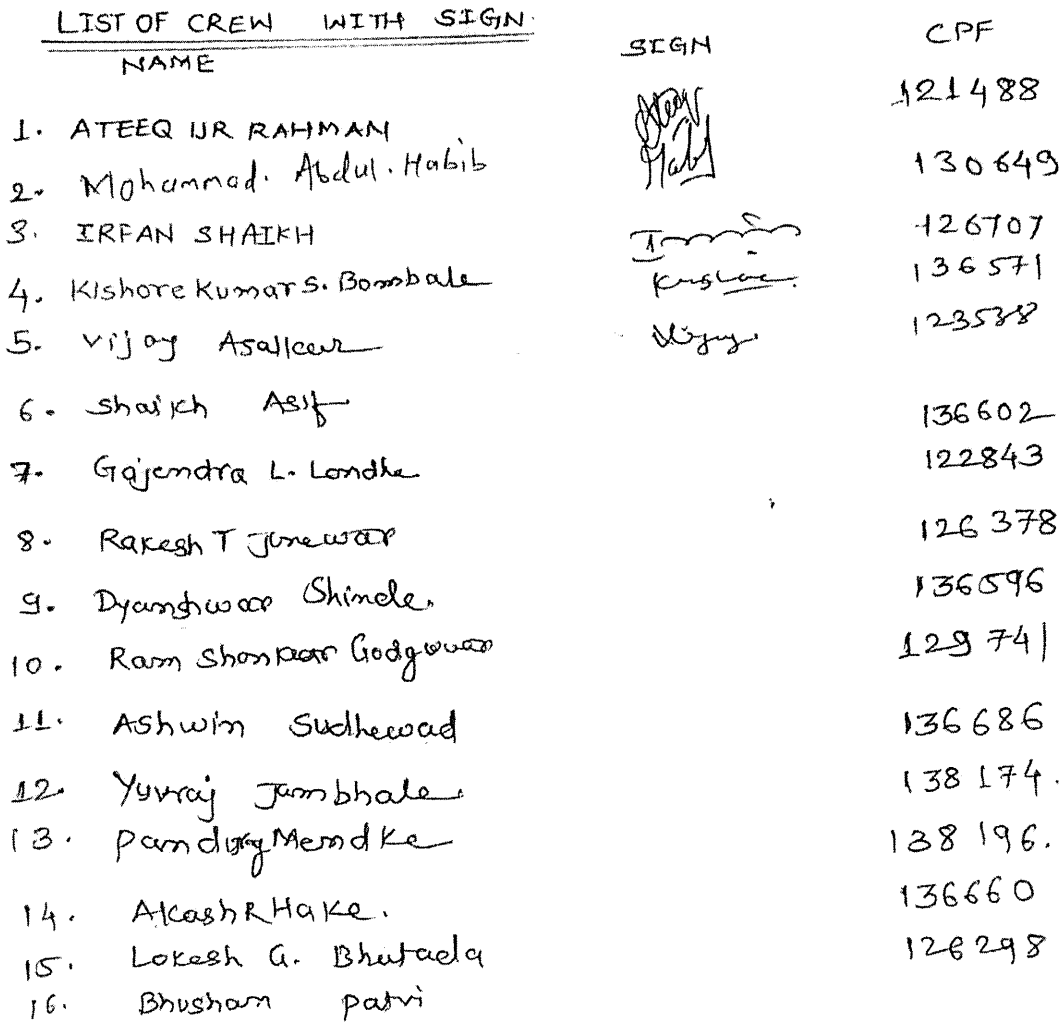 LIST OF CREW WITH SIGN.
NAME SIGN CPF
1. ATEEQ UR RAHMAN Ateeq 121488
2. Mohammad. Abdul. Habib Habib 130649
3. IRFAN SHAIKH 126707
4. Kishore Kumar S. Bombale Kishore 136571
5. Vijay Asalkar Vijay 123538
6. Shaikh Asif 136602
7. Gajendra L. Londhe 122843
8. Rakesh T Junewar 126378
9. Dyanshwar Shinde. 136596
10. Ram Shankar Godgowar 129741
11. Ashwin Sudhewad 136686
12. Yuvraj Jambhale. 138174.
13. Pandurg Mendke 138196.
14. Akash R Hake. 136660
15. Lokesh G. Bhutada 126298
16. Bhushan Patvi